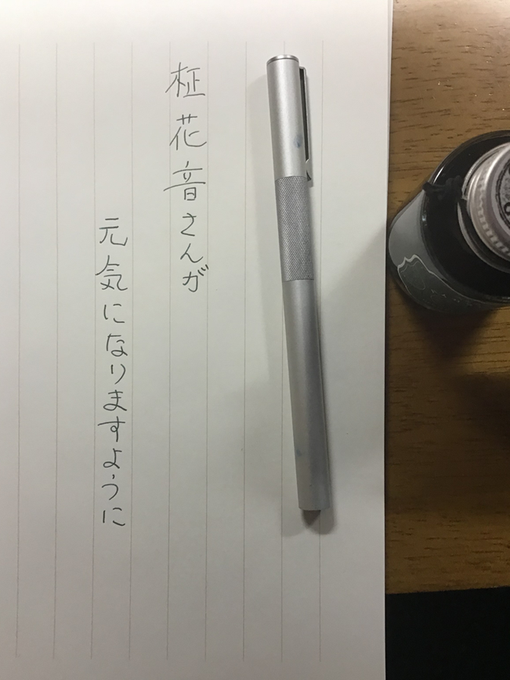 柾花音さんが
元気になりますように